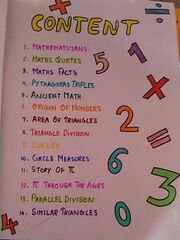 CONTENT
1. MATHEMATICIANS
2. MATHS QUOTES
3. MATHS FACTS
4. PYTHAGORAS TRIPLES
5. ANCIENT MATH
6. ORIGIN OF NUMBERS
7. AREA OF TRIANGLES
8. TRIANGLE DIVISION
9. CIRCLES
10. CIRCLE MEASURES
11. STORY OF π
12. π THROUGH THE AGES
13. PARALLEL DIVISION
14. SIMILAR TRIANGLES
÷
5
1
×
2
=
6
0
3
+
×